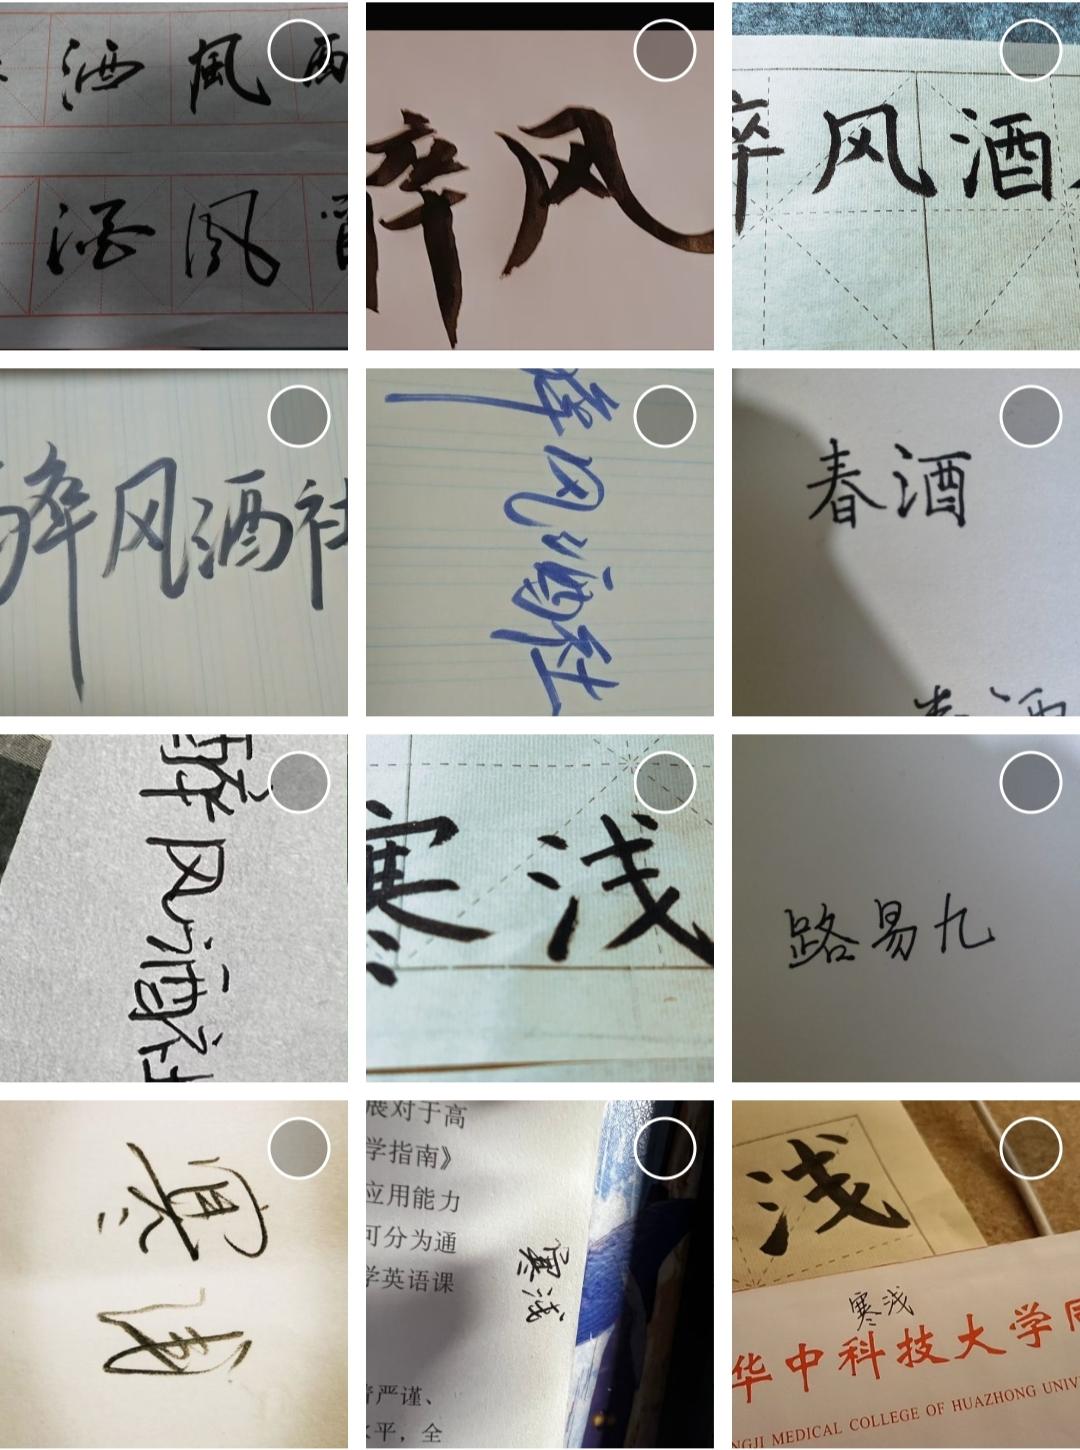 酒風
酒風
醉风
醉风酒
醉风酒社
醉风酒社
春酒
春酒
醉风酒社
寒浅
路易九
寒
浅
展对于高
学指南》
应用能力
可分为通
学英语课
寒浅
严谨、
水平，全
浅
寒浅
华中科技大学同
NGJI MEDICAL COLLEGE OF HUAZHONG UNIV